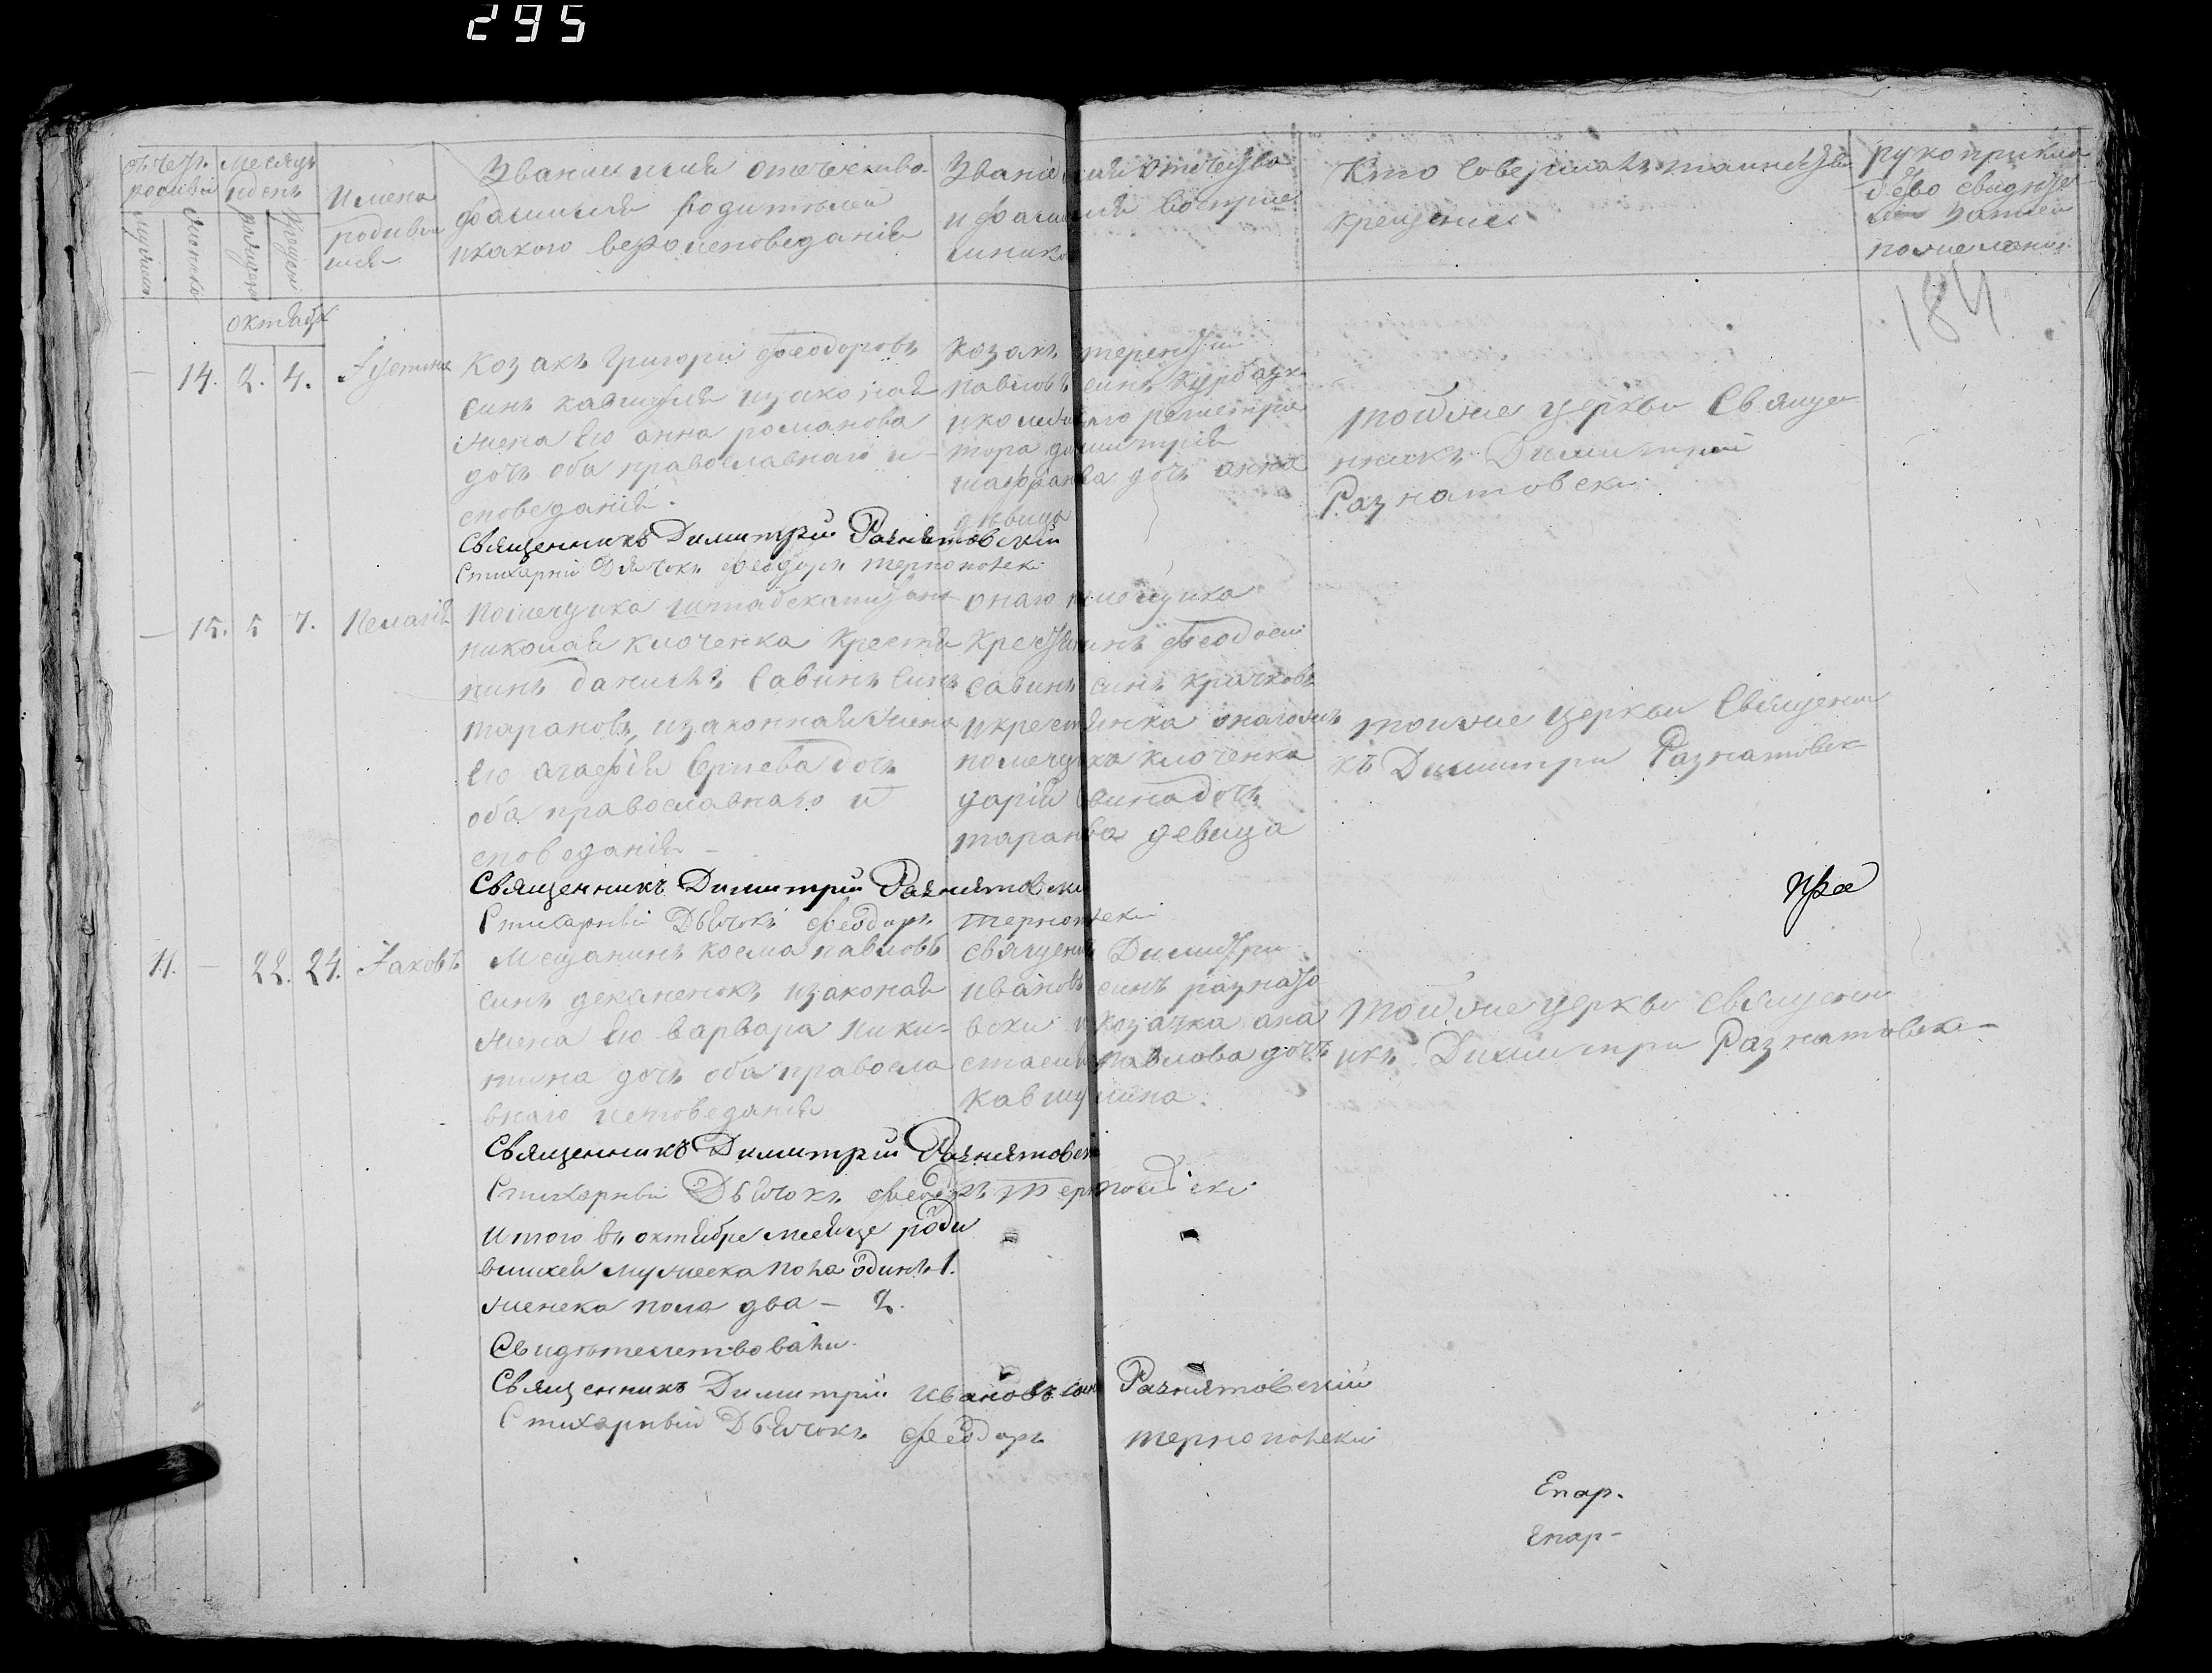 295
счетъ родивш
месяцъ идень
имена родивш шея
звание имя отечество фамилия родителей икакого вероисповеданія
Званіе имя отечество и фамилия восприе мнико
Кто совершалъ таинство крещения
рукоприкла дство свидет записи пожеланию
мужеска
женска
рождения
крещения
184
октябрь
— 14. 2. 4. Іустина
Козакъ Григорій феодоровъ
синъ кавшуля изаконая
жена его анна романова
дочь оба православнаго и
споведанія.
козакъ терентій
павловъ синъ
иколежаго регистра
тора димитрія
дочь анна
дѣвица
тойже церкви Свяще
нникъ Димитрий
Разнатовски
Священникъ Димитрій Разнятовскій
Стихарній Дячокъ феодоръ тернопольски
— 15. 5 7. Пелагія
Помещика штабскапитана
николая клоченка крестя
нинъ данилъ савинъ синъ
тарановъ изаконная жена
его агафія дочь
оба православнаго и
споведанія —
онаго помещика
крестянинъ феодосій
савинъ синъ крачковъ
икрестянка онагожъ
помещика клоченка
дарія савина дочь
таранова девица
тоиже церкви Священни
къ Димитри Разнатовск
Священникъ Димитрій Разнятовски
Стихарный Дьячокъ феодоръ тернопольски
11. — 22. 24. Іаковъ
Мещанинъ косма павловъ
синъ деканенокъ изаконая
жена его варвара ники-
тина дочь оба правосла
внаго исповеданія
священикъ Димитри
ивановъ синъ разнато
вски икозачка ана
стасия павлова дочь
кавшулина.
тойже церкви священн
икъ Димитри Разнатовски —
Священникъ Димитрій Разнятовски
Стихарный Дьячокъ феодоръ тернопольски
Итого въ октябре месяце роди
вшихся мужеска пола одинъ 1.
женска пола два — 2.
Свидѣтелствовали
Священникъ Димитрій Ивановъ синъ Разнятовскій
Стихарный Дьячокъ феодоръ тернопольски
Епар.
Епар-